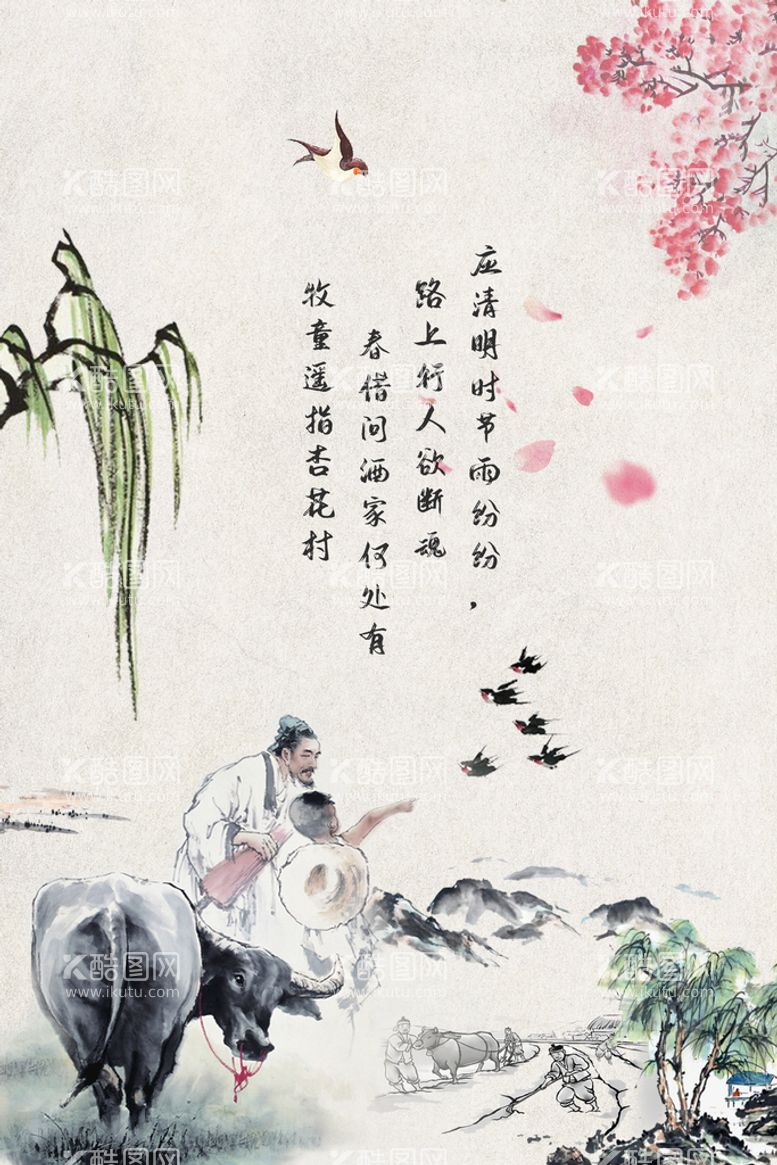 应清明时节雨纷纷，
路上行人欲断魂
春借问酒家何处有
牧童遥指杏花村
酷图网
www.ikutu.com